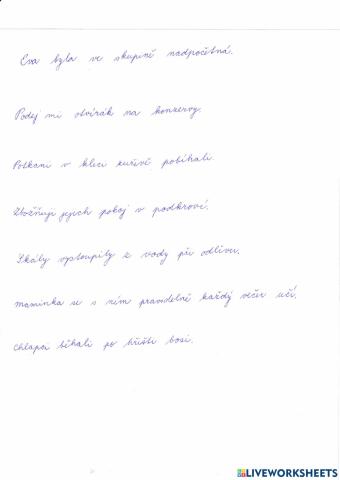 Eva byla ve skupině nadpočetná.
Podej mi otvírák na konzervy.
Potkani v kleci zuřivě pobíhali.
Zbožňuji jejich pokoj v podkroví.
Skály vystoupily z vody při odlivu.
maminka se s ním pravidelně každý večer učí.
Chlapci běhali po hřišti bosi.
LIVEWORKSHEETS